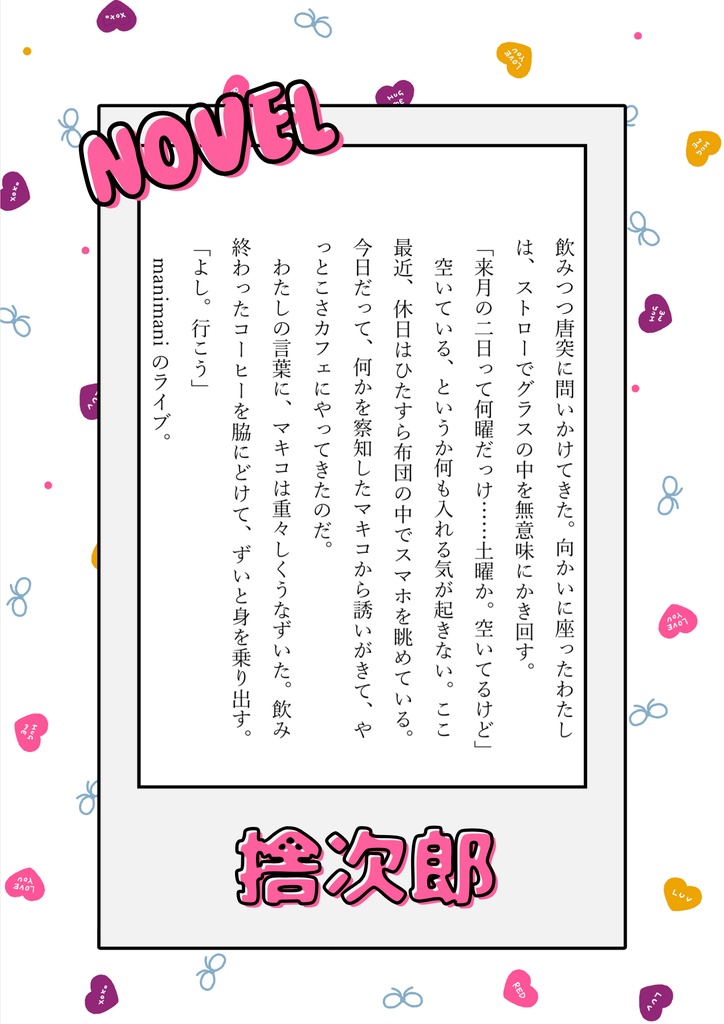 NOVEL
飲みつつ唐突に問いかけてきた。向かいに座ったわたし
は、ストローでグラスの中を無意味にかき回す。
「来月の二日って何曜だっけ……土曜か。空いてるけど」
空いている、というか何も入れる気が起きない。ここ
最近、休日はひたすら布団の中でスマホを眺めている。
今日だって、何かを察知したマキコから誘いがきて、や
っとこさカフェにやってきたのだ。
わたしの言葉に、マキコは重々しくうなずいた。飲み
終わったコーヒーを脇にどけて、ずいと身を乗り出す。
「よし。行こう」
manimani のライブ。
捨次郎
xoxo
LOVE YOU
HUG ME
HUG ME
xoxo
HUG ME
LUV
LOVE YOU
HUG ME
LOVE YOU
LUV
xoxo
RED
LUV